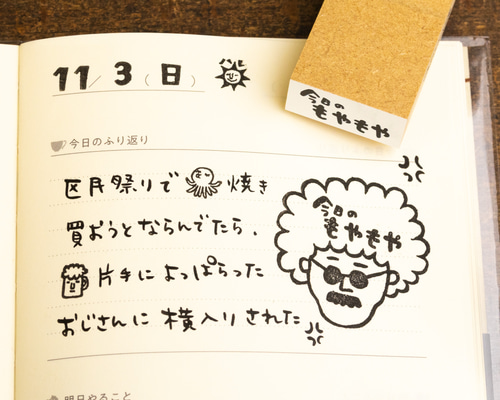 11/3(日)
今日のもやもや
今日のふり返り
区民祭りで焼き
買おうとならんでたら、
片手によっぱらった
おじさんに横入りされた
今日の
もやもや
明日やること